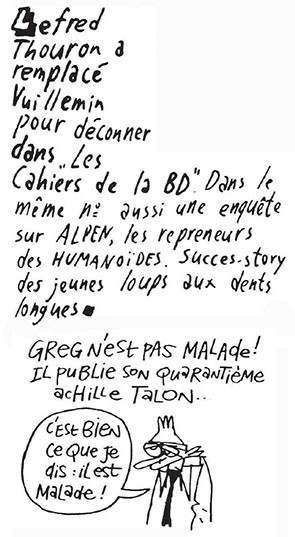 Lefred
Thouron a
remplacé
Vuillemin
pour déconner
dans "Les
Cahiers de la BD". Dans le
même nº aussi une enquête
sur ALPEN, les repreneurs
des HUMANOÏDES. Succes-story
des jeunes loups aux dents
longues
GREG N'EST PAS MALADE!
IL PUBLIE SON QUARANTIÈME
ACHILLE TALON..
C'EST BIEN
CE QUE JE
DIS : IL EST
MALADE!